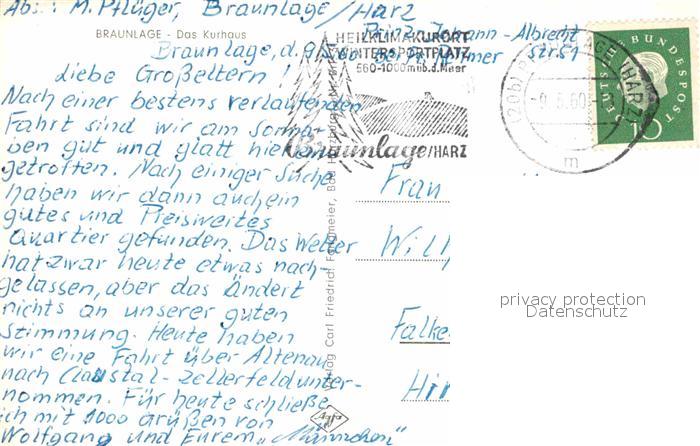 Abs.: M. Pflüger, Braunlage/Harz
Prinz-Johann-Albrecht
BRAUNLAGE - Das Kurhaus
Braunlage, d. 9.
liebe Großeltern!
Nach einer bestens verlaufenden
Fahrt sind wir am Sonna-
ben gut und glatt hier
getroffen. Nach einiger Suche
haben wir dann auch ein
gutes und Preiswertes
Quartier gefunden. Das Wetter
hat zwar heute etwas nach-
gelassen, aber das Ändert
nichts an unserer guten
Stimmung. Heute haben
wir eine Fahrt über Altenau
nach Claustal-Zellerfeld unter-
nommen. Für heute schließe
ich mit 1000 Grüßen von
Wolfgang und Eurem „Männchen"
HEILKLIMAKURORT
WINTERSPORTPLATZ
560-1000m üb.d.Meer
Braunlage/HARZ
(HARZ)
m
DEUTSCHE BUNDESPOST
10
Frau
Will
Falke
Hin
Verlag Carl Friedrich Fangmeier, Bad Harzburg
Agfa
privacy protection
Datenschutz